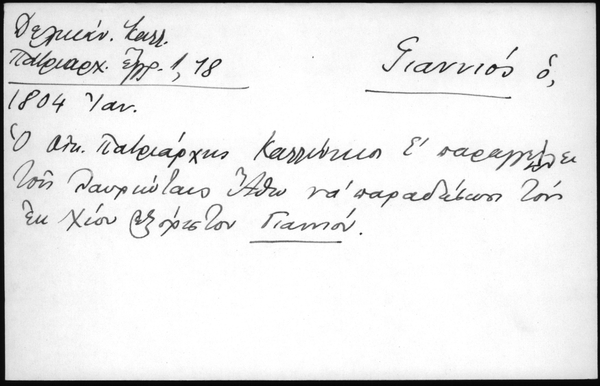 Δελικάν. Καλλ.
Πατριαρχ. Ἔγγρ. 1, 78
Γιαννιός ὁ,
1804 Ἰαν.
Ὁ Οἰκ. Πατριάρχης Καλλίνικος Ε' παραγγέλλει
τοῖς Λαυριώταις Ἄθω νὰ παραδώσωσι τὸν
ἐκ Χίου ἐξόριστον Γιαννιόν.